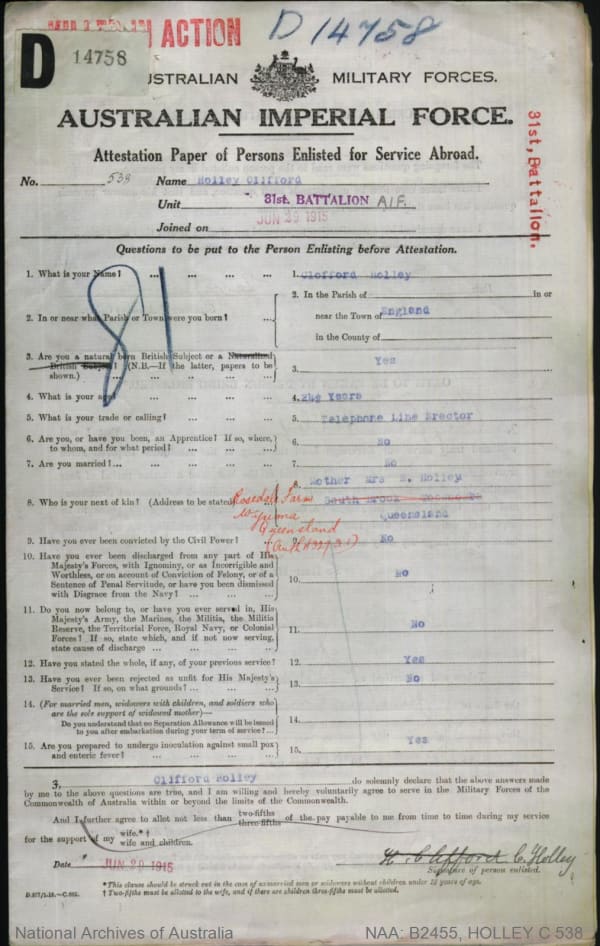 ACTION
D 14758
D
14758
AUSTRALIAN MILITARY FORCES.
AUSTRALIAN IMPERIAL FORCE.
Attestation Paper of Persons Enlisted for Service Abroad.
31st, Battalion.
No. 538 Name Holley Clifford
Unit 31st. BATTALION A.I.F.
Joined on JUN 29 1915
Questions to be put to the Person Enlisting before Attestation.
81
1. What is your Name? ... ... ... ... 1. Clofford Holley
2. In or near what Parish or Town were you born? ... 2. In the Parish of in or
near the Town of England
in the County of
3. Are you a natural born British Subject or a Naturalized
British Subject? (N.B.—If the latter, papers to be
shown.) 3. Yes
4. What is your age? 4. 24½ Years
5. What is your trade or calling? ... ... ... 5. Telephone Line Erector
6. Are you, or have you been, an Apprentice? If so, where,
to whom, and for what period? ... ... 6. No
7. Are you married? ... ... ... ... ... 7. No
8. Who is your next of kin? (Address to be stated) 8. Mother Mrs E. Holley
South Brook
Queensland
Rosedale Farm
Queensland
9. Have you ever been convicted by the Civil Power? 9. No
10. Have you ever been discharged from any part of His
Majesty's Forces, with Ignominy, or as Incorrigible and
Worthless, or on account of Conviction of Felony, or of a
Sentence of Penal Servitude, or have you been dismissed
with Disgrace from the Navy? ... ... ... 10. No
11. Do you now belong to, or have you ever served in, His
Majesty's Army, the Marines, the Militia, the Militia
Reserve, the Territorial Force, Royal Navy, or Colonial
Forces? If so, state which, and if not now serving,
state cause of discharge ... ... ... ... 11. No
12. Have you stated the whole, if any, of your previous service? 12. Yes
13. Have you ever been rejected as unfit for His Majesty's
Service? If so, on what grounds? ... ... ... 13. No
14. (For married men, widowers with children, and soldiers who
are the sole support of widowed mother)—
Do you understand that no Separation Allowance will be issued
to you after embarkation during your term of service? ... 14.
15. Are you prepared to undergo inoculation against small pox
and enteric fever? ... ... ... ... 15. Yes
I, Clifford Holley do solemnly declare that the above answers made
by me to the above questions are true, and I am willing and hereby voluntarily agree to serve in the Military Forces of the
Commonwealth of Australia within or beyond the limits of the Commonwealth.
And I further agree to allot not less than two-fifths three-fifths of the pay payable to me from time to time during my service
for the support of my wife.*† wife and children.
Date JUN 29 1915 H. Clifford C. Holley
Signature of person enlisted.
*This clause should be struck out in the case of unmarried men or widowers without children under 18 years of age.
† Two-fifths must be allotted to the wife, and if there are children three-fifths must be allotted.
National Archives of Australia NAA: B2455, HOLLEY C 538